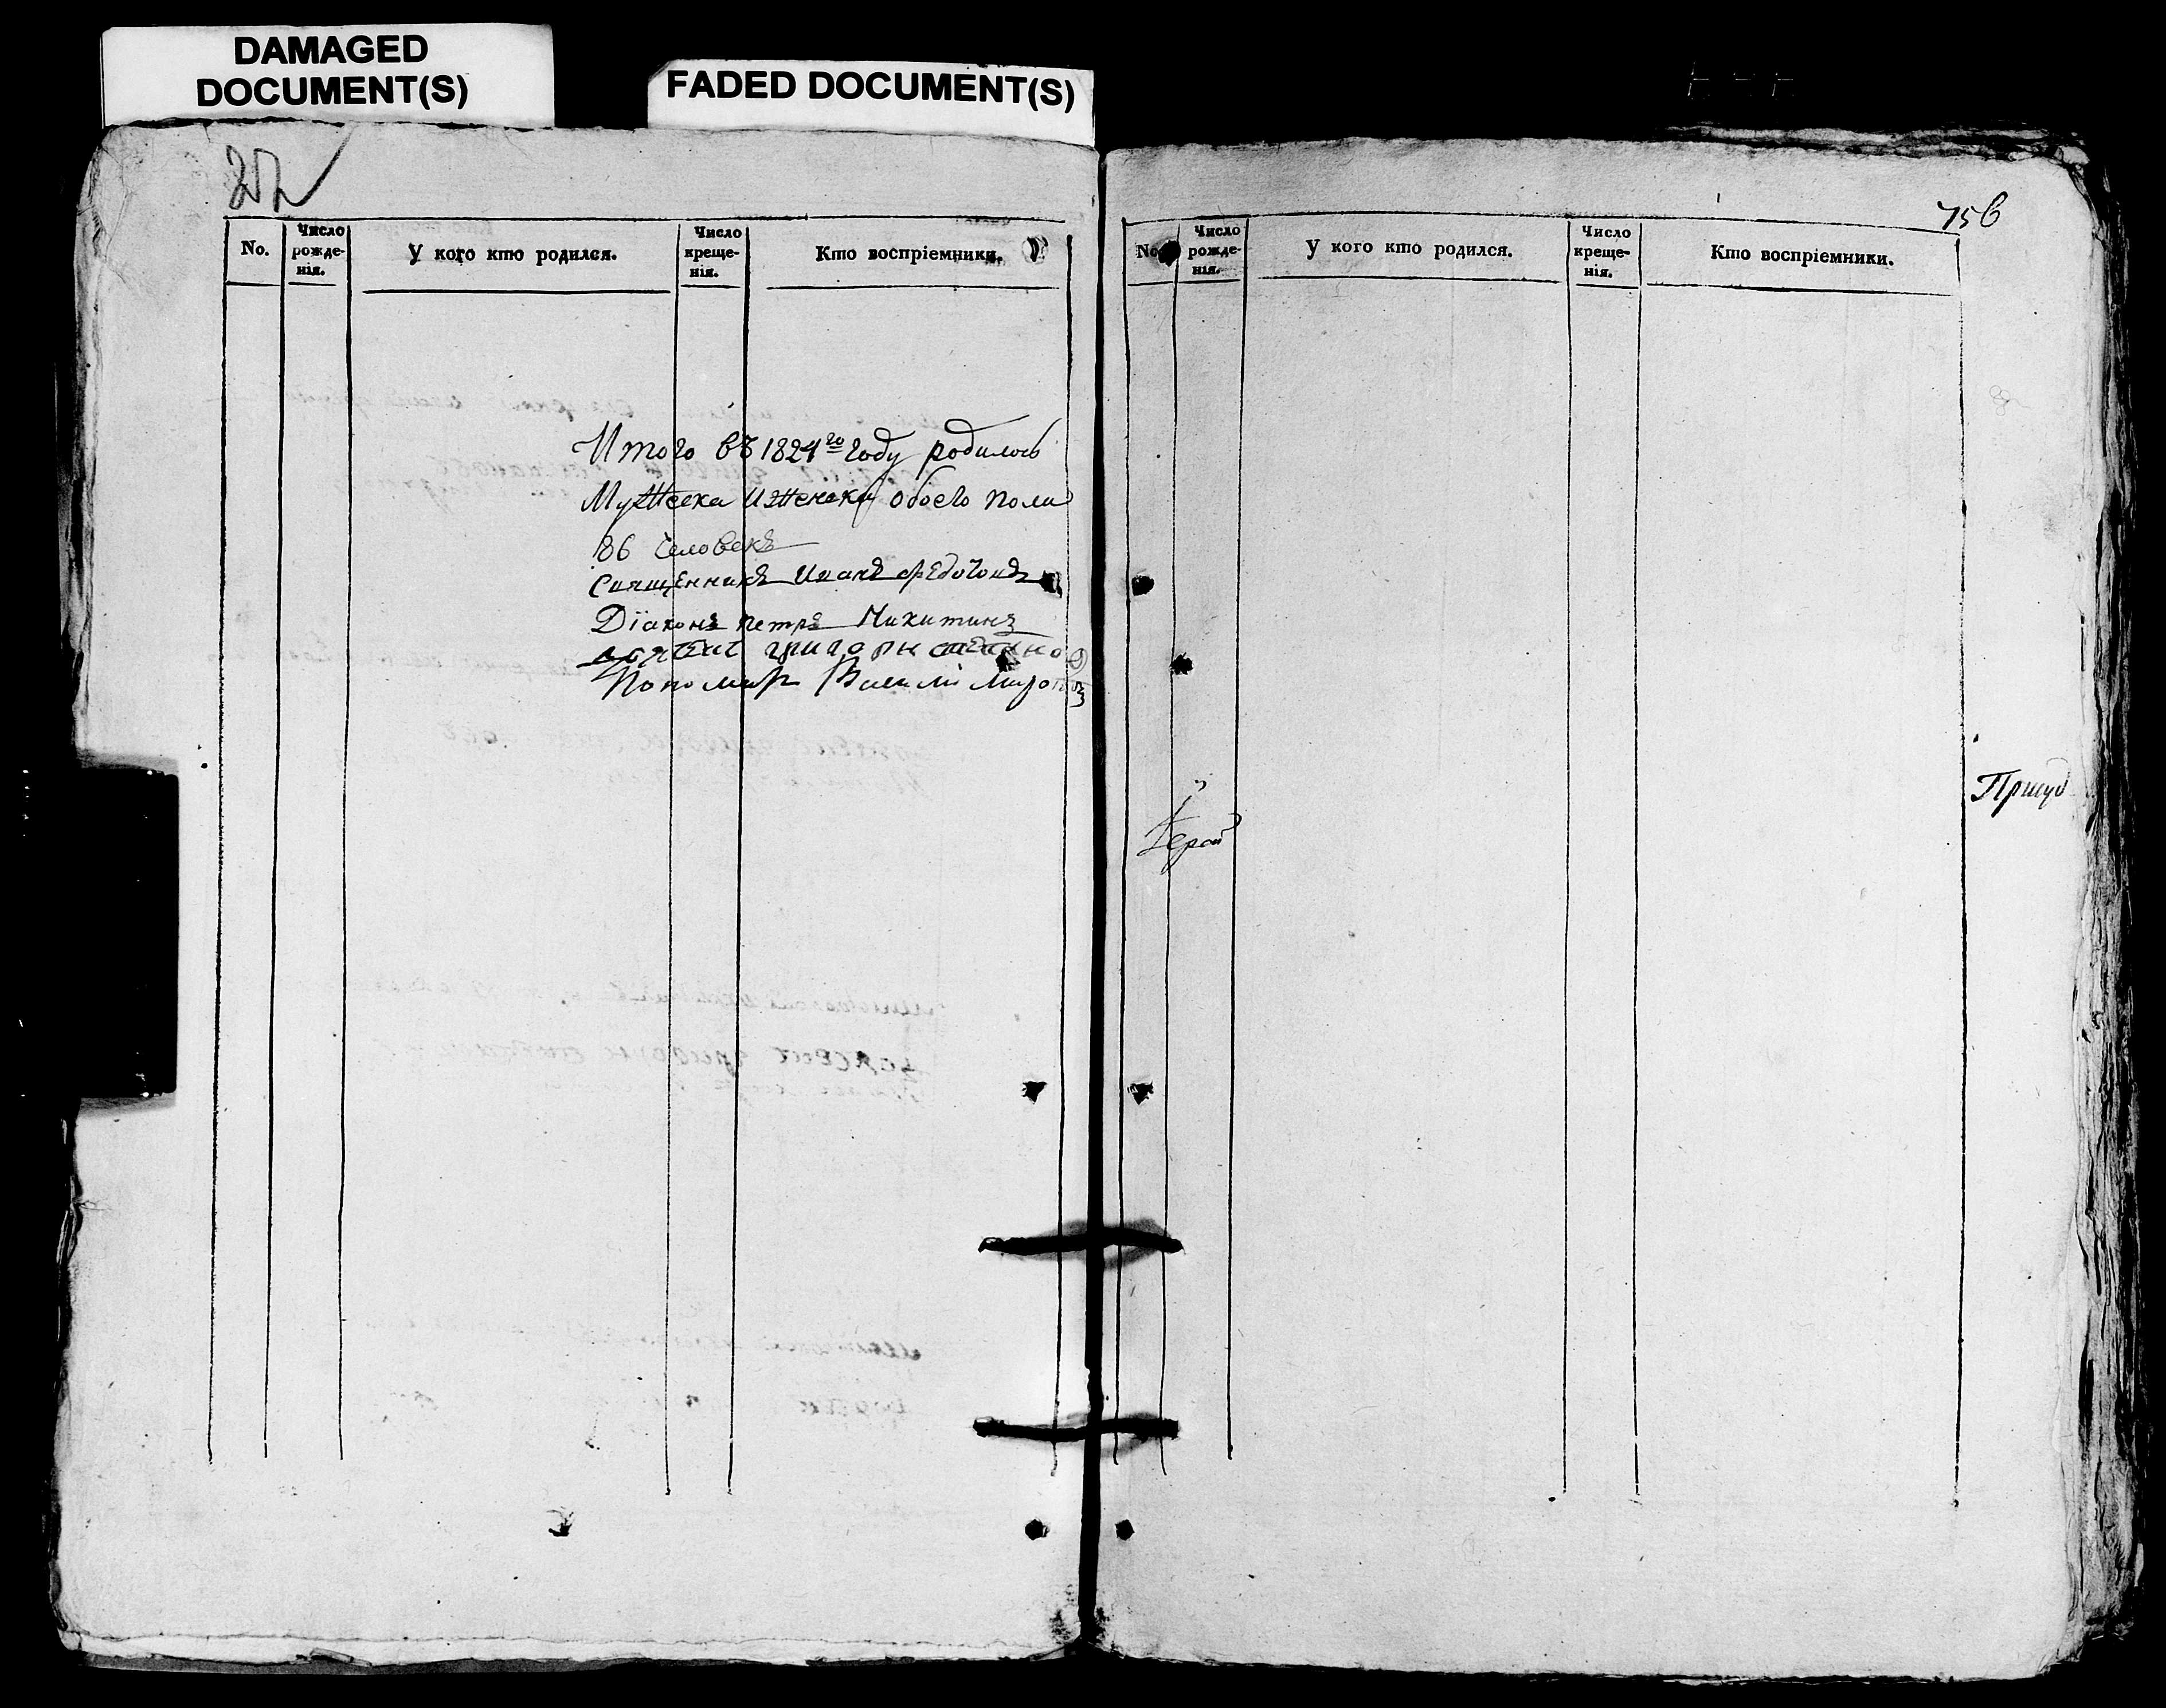 DAMAGED
DOCUMENT(S)
FADED DOCUMENT(S)
No.
Число рожде-нія.
У кого кто родился.
Число креще-нія.
Кто воспріемники.
Итого въ 1824го году родилось
Мужеска и женска обоего пола
86 человекъ
Священникъ Иванъ
Діаконъ петръ Никитинъ
григори
Пономарь Василі Миронов
756
No.
Число рожде-нія.
У кого кто родился.
Число креще-нія.
Кто воспріемники.